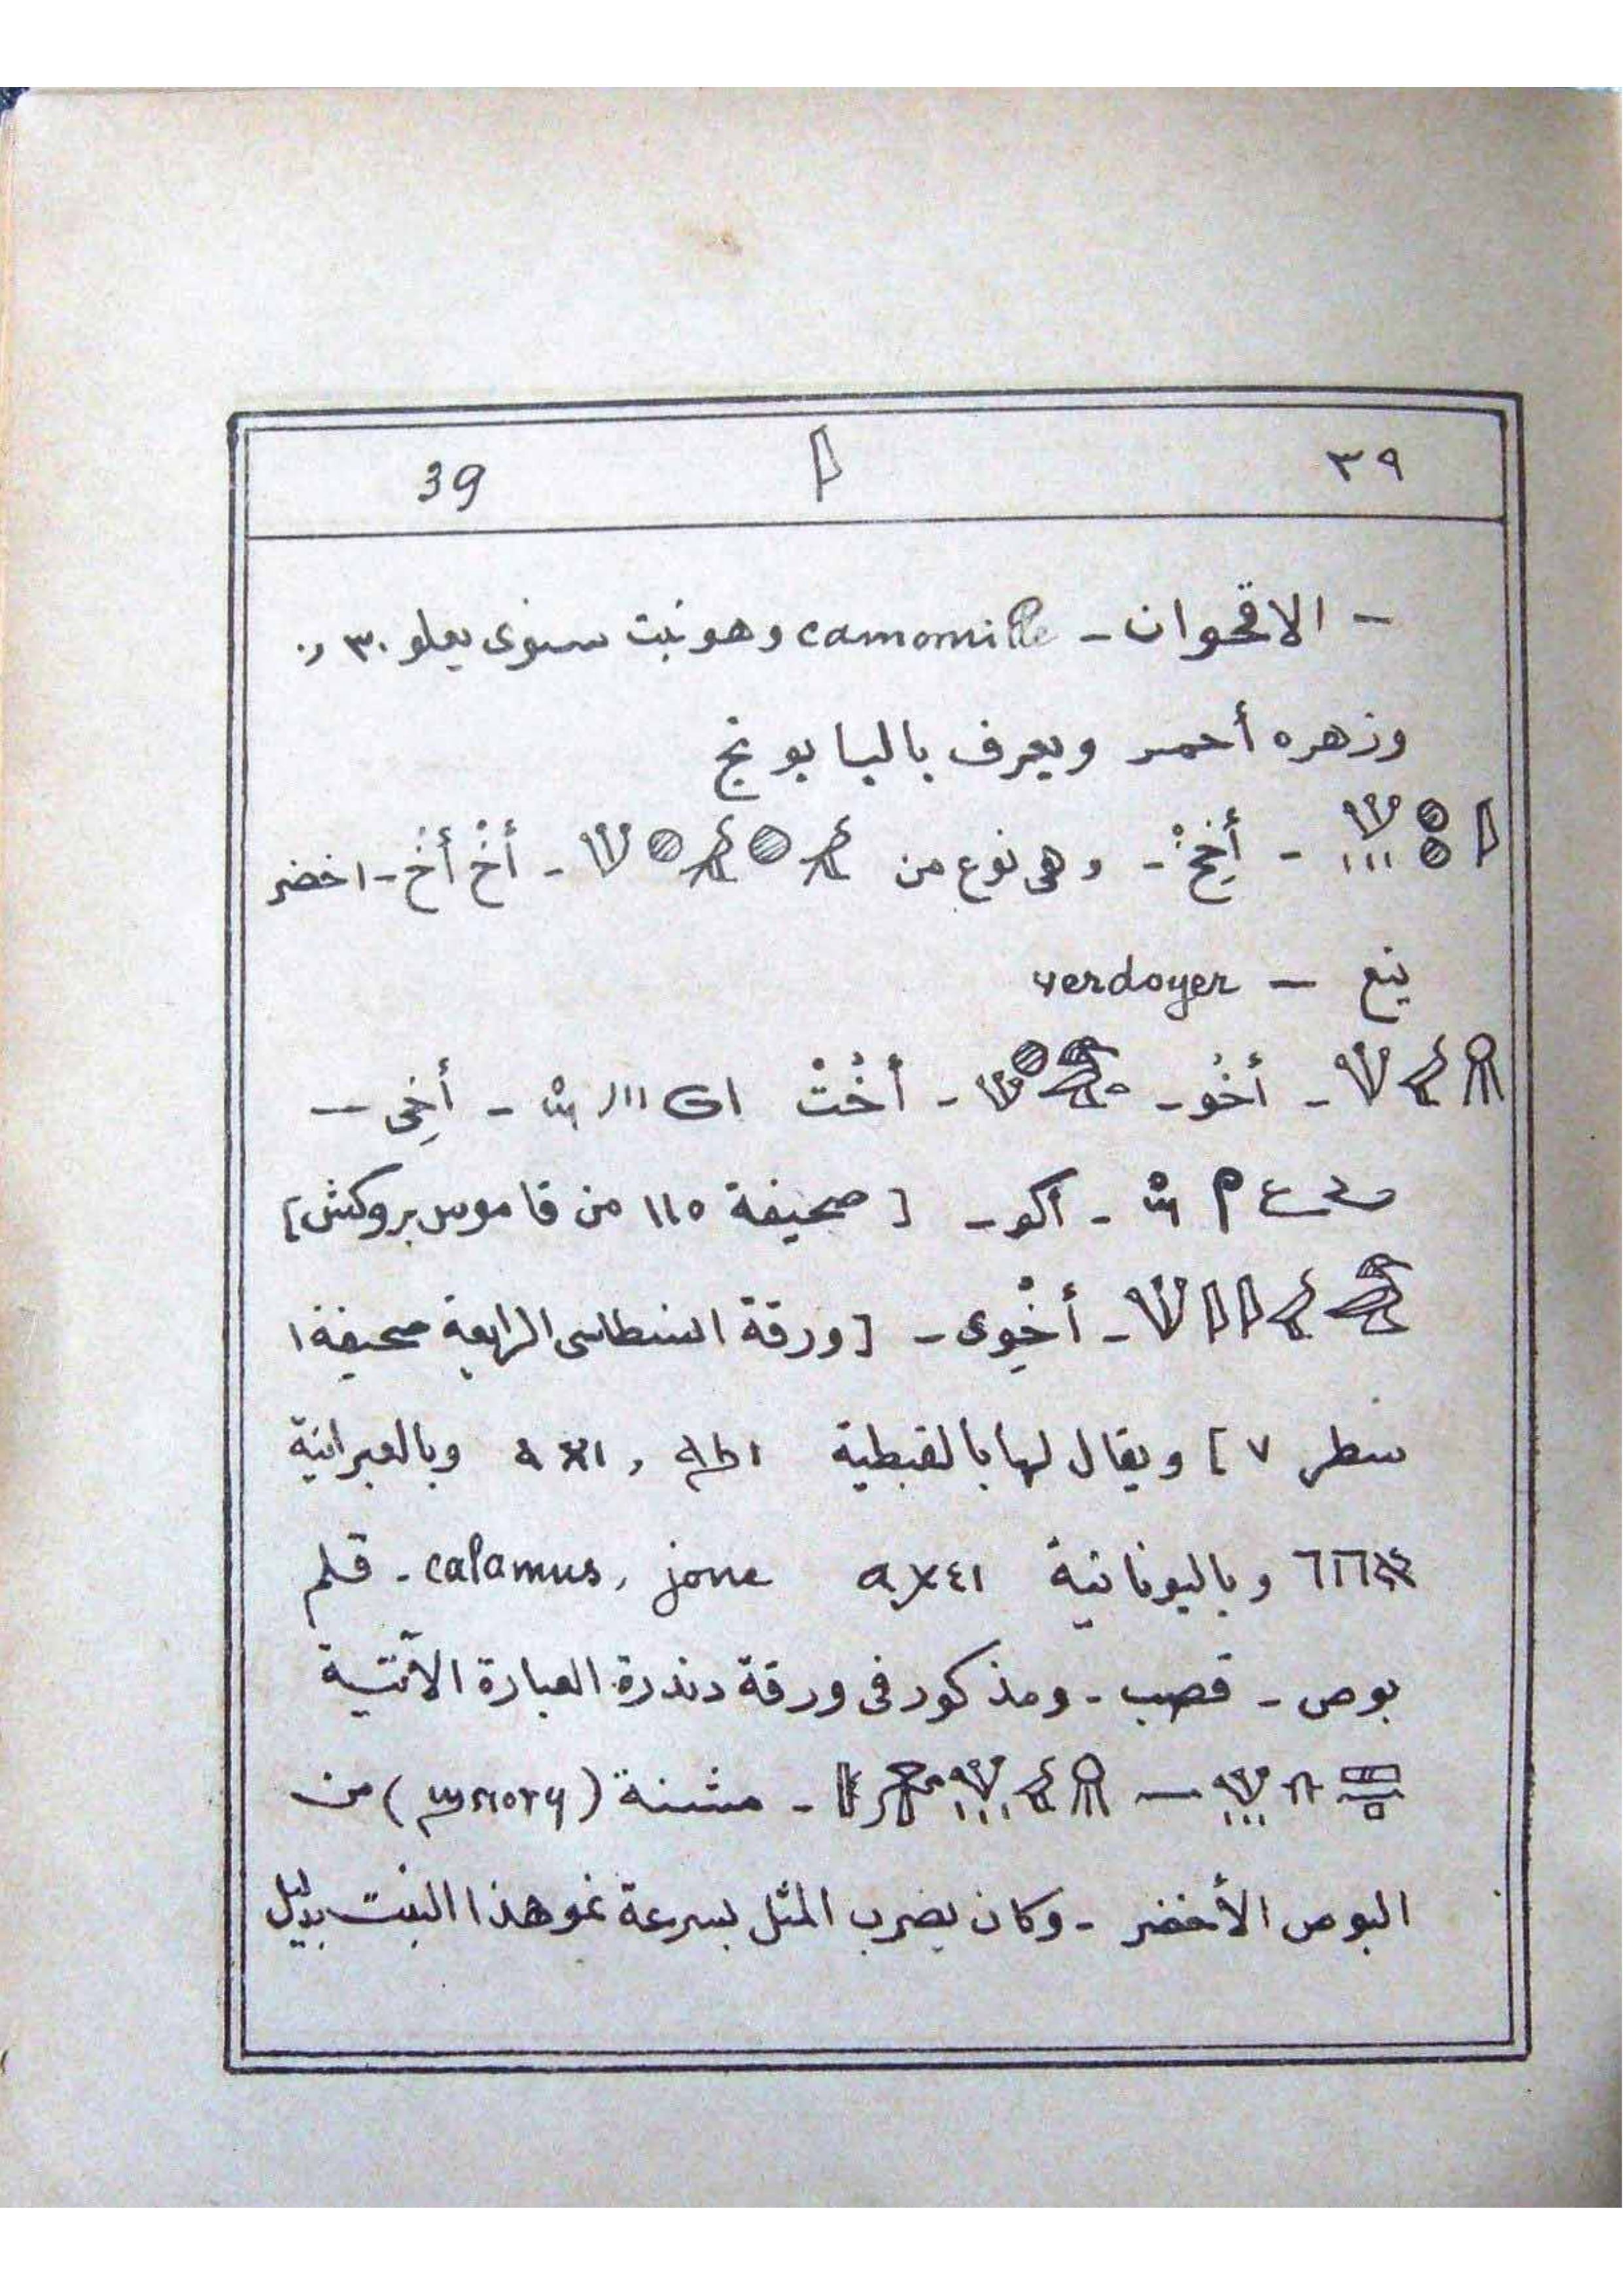 ٣٩ 39
- الاقحوان - camomille وهو نبت سنوى يعلو ٣٠ر٠
وزهره أحمر ويعرف بالبابونج
- أَخِخْ - وهى نوع من - أخْ أخْ - اخضر
ينع - verdoyer
- أخُو - - أخُتْ - أخِى -
- آكو - [ صحيفة ١١٥ من قاموس بروكش ]
- أخْوِى - [ ورقة انسطاسى الرابعة صحيفة ١
سطر ٧ ] ويقال لها بالقبطية وبالعبرانية
وباليونانية calamus, jonc - قلم
بوص - قصب - ومذكور فى ورقة دندرة العبارة الآتية
- مشنة ( ) من
البوص الأخضر - وكان يضرب المثل بسرعة نمو هذا النبت بدليل